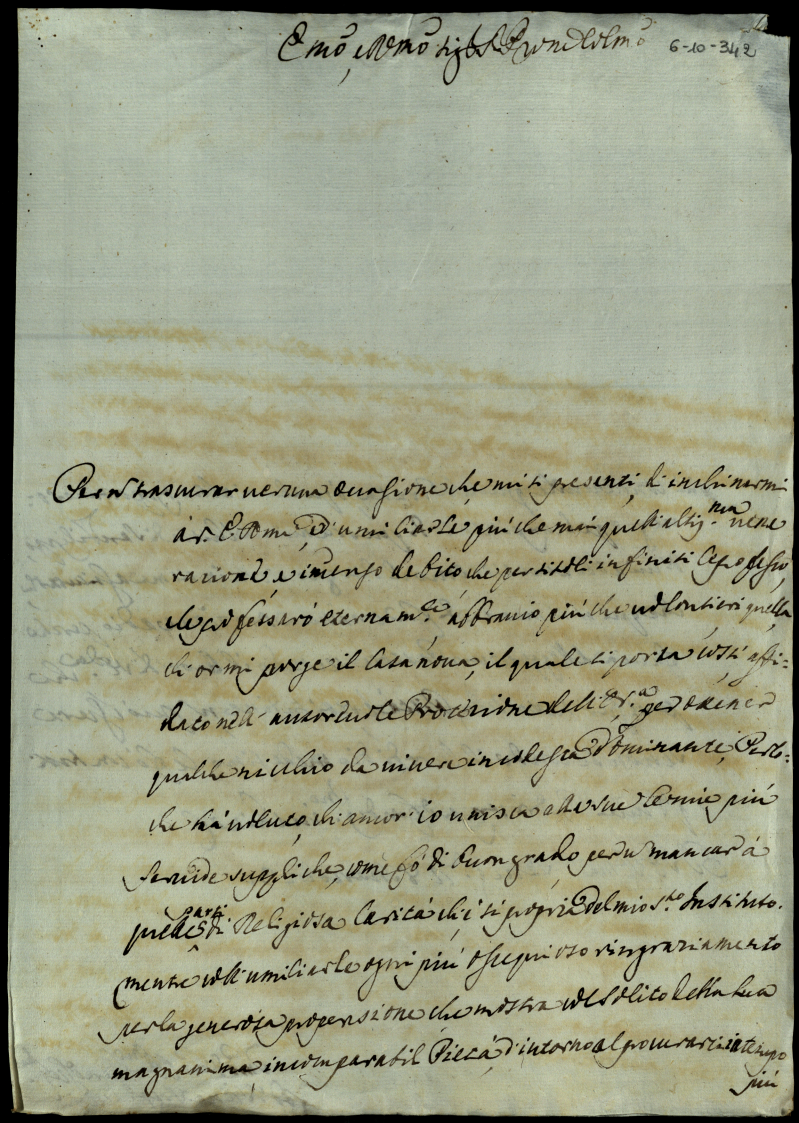 Emo, e Rmo Sig.r Pron Colmo 6-10-342
Per ñ trascurar veruna occasione che mi si presenti, di inchinarmi
à V. Em.a, e d'umiliarle più che mai quell'altiss.ma vene
razione, e immenso debito che per titoli infiniti le professo,
e le professarò eternam.te abbraccio più che volontieri quella,
ch'or mi porge il Casanova, il quale si porta costì affi=
dato nell' autorevole Protezione dell'E.V.ra per ottener
qualche nicchio da vivere in codesta Dominante. Perlo=
che hà voluto, ch'ancor io unisca alle sue le mie più
fervide suppliche, come fò di buon grado per ñ mancar à
quelle parti di Religiosa Carità ch'è sì propria del mio S.to Instituto.
mente coll'umiliarle ogni più ossequioso ringraziamento
per la generosa propensione che mostra col solito della sua
magnanima incomparabil Pietà, d'intorno al procurarci in tempo
più